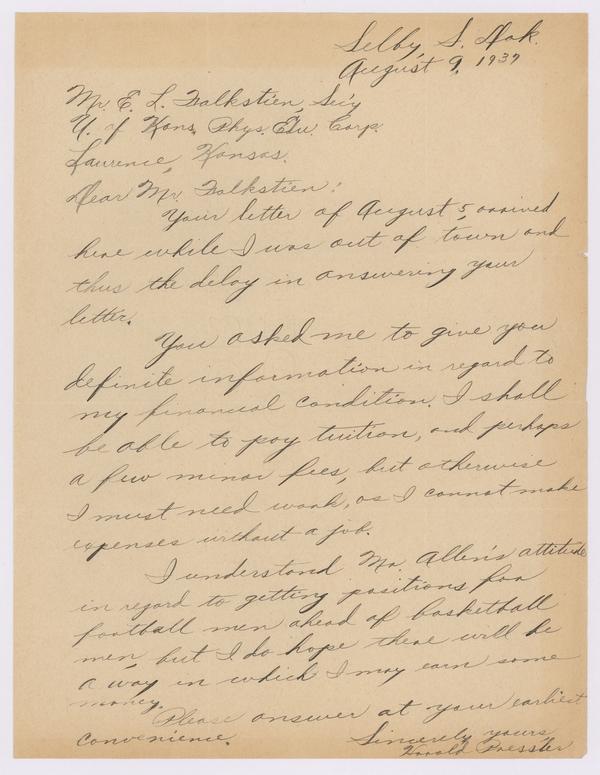 Selby, S. Dak.
August 9, 1937
Mr. E. L. Falkstien, Sec'y
U. of Kans. Phys. Edu. Corp.
Lawrence, Kansas.
Dear Mr. Falkstien:
Your letter of August 5, arrived
here while I was out of town and
thus the delay in answering your
letter.
You asked me to give you
definite information in regard to
my financial condition. I shall
be able to pay tuition, and perhaps
a few minor fees, but otherwise
I must need work, as I cannot make
expenses without a job.
I understand Mr. Allen's attitude
in regard to getting positions for
football men ahead of basketball
men, but I do hope there will be
a way in which I may earn some
money.
Please answer at your earliest
convenience.
Sincerely yours,
Harold Pressler